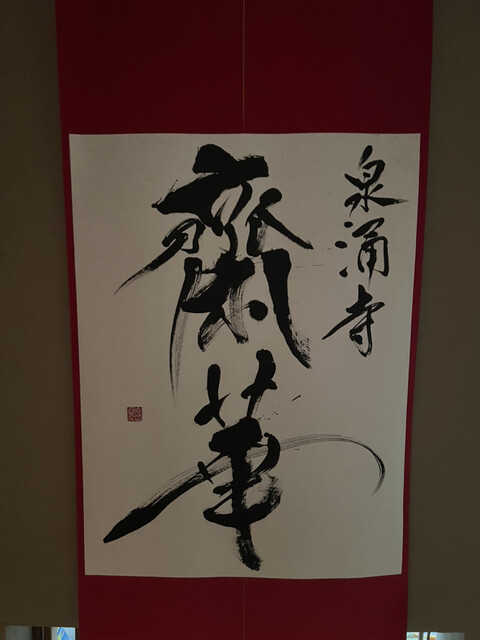 泉涌寺
齋華